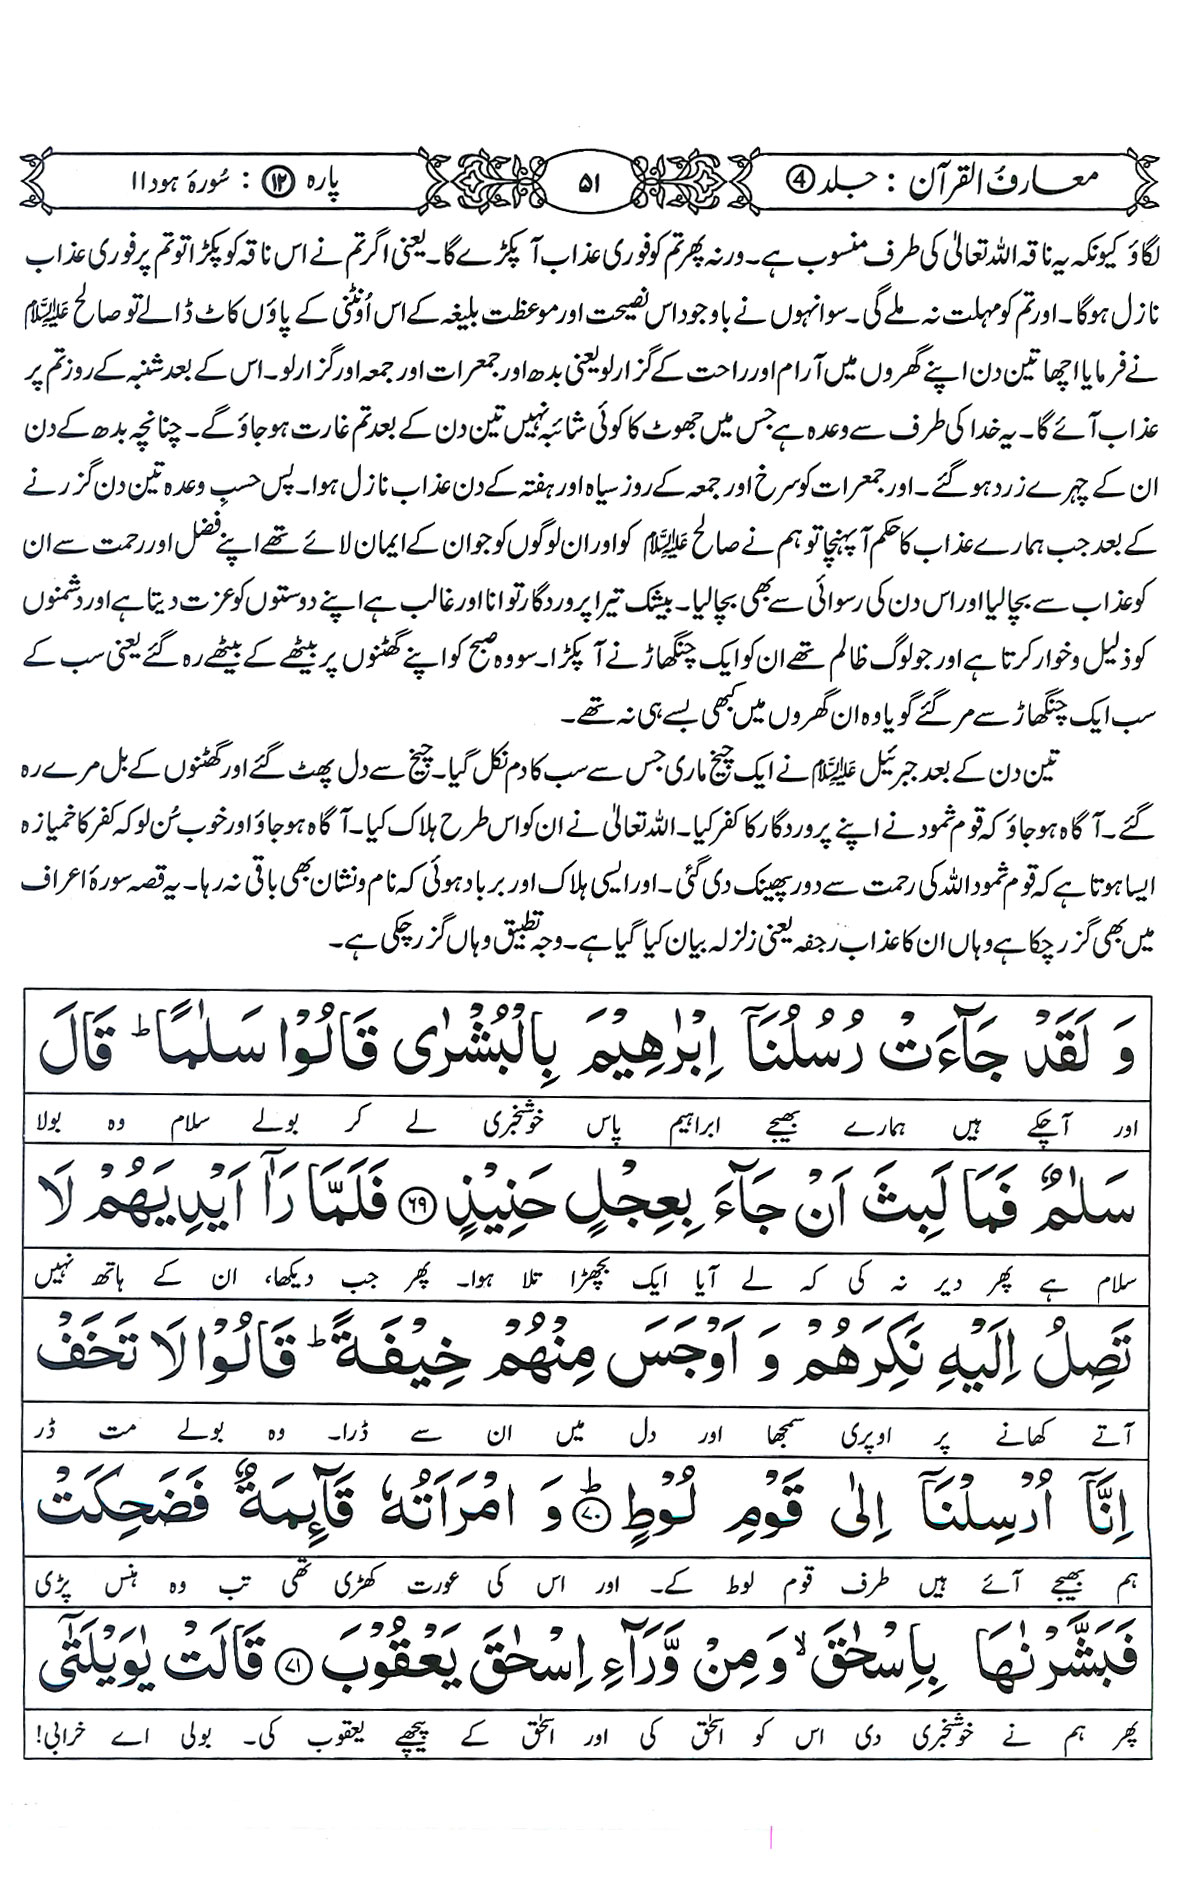 معارف القرآن : جلد ④
۵۱
پارہ ⑫ : سُورۂ ہود ۱۱
لگاؤ کیونکہ یہ ناقہ اللہ تعالیٰ کی طرف منسوب ہے۔ ورنہ پھر تم کو فوری عذاب آ پکڑے گا۔ یعنی اگر تم نے اس ناقہ کو پکڑا تو تم پر فوری عذاب
نازل ہوگا۔ اور تم کو مہلت نہ ملے گی۔ سو انہوں نے باوجود اس نصیحت اور موعظت بلیغہ کے اس اُونٹنی کے پاؤں کاٹ ڈالے تو صالح علیہ السلام
نے فرمایا اچھا تین دن اپنے گھروں میں آرام اور راحت کے گزار لو یعنی بدھ اور جمعرات اور جمعہ اور گزار لو۔ اس کے بعد شنبہ کے روز تم پر
عذاب آئے گا۔ یہ خدا کی طرف سے وعدہ ہے جس میں جھوٹ کا کوئی شائبہ نہیں تین دن کے بعد تم غارت ہو جاؤ گے۔ چنانچہ بدھ کے دن
ان کے چہرے زرد ہو گئے۔ اور جمعرات کو سرخ اور جمعہ کے روز سیاہ اور ہفتہ کے دن عذاب نازل ہوا۔ پس حسبِ وعدہ تین دن گزرنے
کے بعد جب ہمارے عذاب کا حکم آ پہنچا تو ہم نے صالح علیہ السلام کو اور ان لوگوں کو جو ان کے ایمان لائے تھے اپنے فضل اور رحمت سے ان
کو عذاب سے بچا لیا اور اس دن کی رسوائی سے بھی بچا لیا۔ بیشک تیرا پروردگار توانا اور غالب ہے اپنے دوستوں کو عزت دیتا ہے اور دشمنوں
کو ذلیل و خوار کرتا ہے اور جو لوگ ظالم تھے ان کو ایک چنگھاڑ نے آ پکڑا۔ سو وہ صبح کو اپنے گھٹنوں پر بیٹھے کے بیٹھے رہ گئے یعنی سب کے
سب ایک چنگھاڑ سے مر گئے گویا وہ ان گھروں میں کبھی بسے ہی نہ تھے۔
تین دن کے بعد جبرئیل علیہ السلام نے ایک چیخ ماری جس سے سب کا دم نکل گیا۔ چیخ سے دل پھٹ گئے اور گھٹنوں کے بل مرے رہ
گئے۔ آگاہ ہو جاؤ کہ قوم ثمود نے اپنے پروردگار کا کفر کیا۔ اللہ تعالیٰ نے ان کو اس طرح ہلاک کیا۔ آگاہ ہو جاؤ اور خوب سُن لو کہ کفر کا خمیازہ
ایسا ہوتا ہے کہ قوم ثمود اللہ کی رحمت سے دور پھینک دی گئی۔ اور ایسی ہلاک اور برباد ہوئی کہ نام و نشان بھی باقی نہ رہا۔ یہ قصہ سورۂ اعراف
میں بھی گزر چکا ہے وہاں ان کا عذاب رجفہ یعنی زلزلہ بیان کیا گیا ہے۔ وجہ تطبیق وہاں گزر چکی ہے۔
وَ لَقَدْ جَآءَتْ رُسُلُنَآ اِبْرٰهِيْمَ بِالْبُشْرٰى قَالُوْا سَلٰمًا ؕ قَالَ
اور آچکے ہیں ہمارے بھیجے ابراہیم پاس خوشخبری لے کر بولے سلام وہ بولا
سَلٰمٌ فَمَا لَبِثَ اَنْ جَآءَ بِعِجْلٍ حَنِيْذٍ ﴿۶۹﴾ فَلَمَّا رَاٰۤ اَيْدِيَهُمْ لَا
سلام ہے پھر دیر نہ کی کہ لے آیا ایک بچھڑا تلا ہوا۔ پھر جب دیکھا، ان کے ہاتھ نہیں
تَصِلُ اِلَيْهِ نَكِرَهُمْ وَ اَوْجَسَ مِنْهُمْ خِيْفَةً ؕ قَالُوْا لَا تَخَفْ
آتے کھانے پر اوپری سمجھا اور دل میں ان سے ڈرا۔ وہ بولے مت ڈر
اِنَّآ اُرْسِلْنَآ اِلٰى قَوْمِ لُوْطٍ ؕ﴿۷۰﴾ وَ امْرَاَتُهٗ قَآئِمَةٌ فَضَحِكَتْ
ہم بھیجے آئے ہیں طرف قوم لوط کے۔ اور اس کی عورت کھڑی تھی تب وہ ہنس پڑی
فَبَشَّرْنٰهَا بِاِسْحٰقَ ۙ وَ مِنْ وَّرَآءِ اِسْحٰقَ يَعْقُوْبَ ﴿۷۱﴾ قَالَتْ يٰوَيْلَتٰٓى
پھر ہم نے خوشخبری دی اس کو اسحٰق کی اور اسحٰق کے پیچھے یعقوب کی۔ بولی اے خرابی!